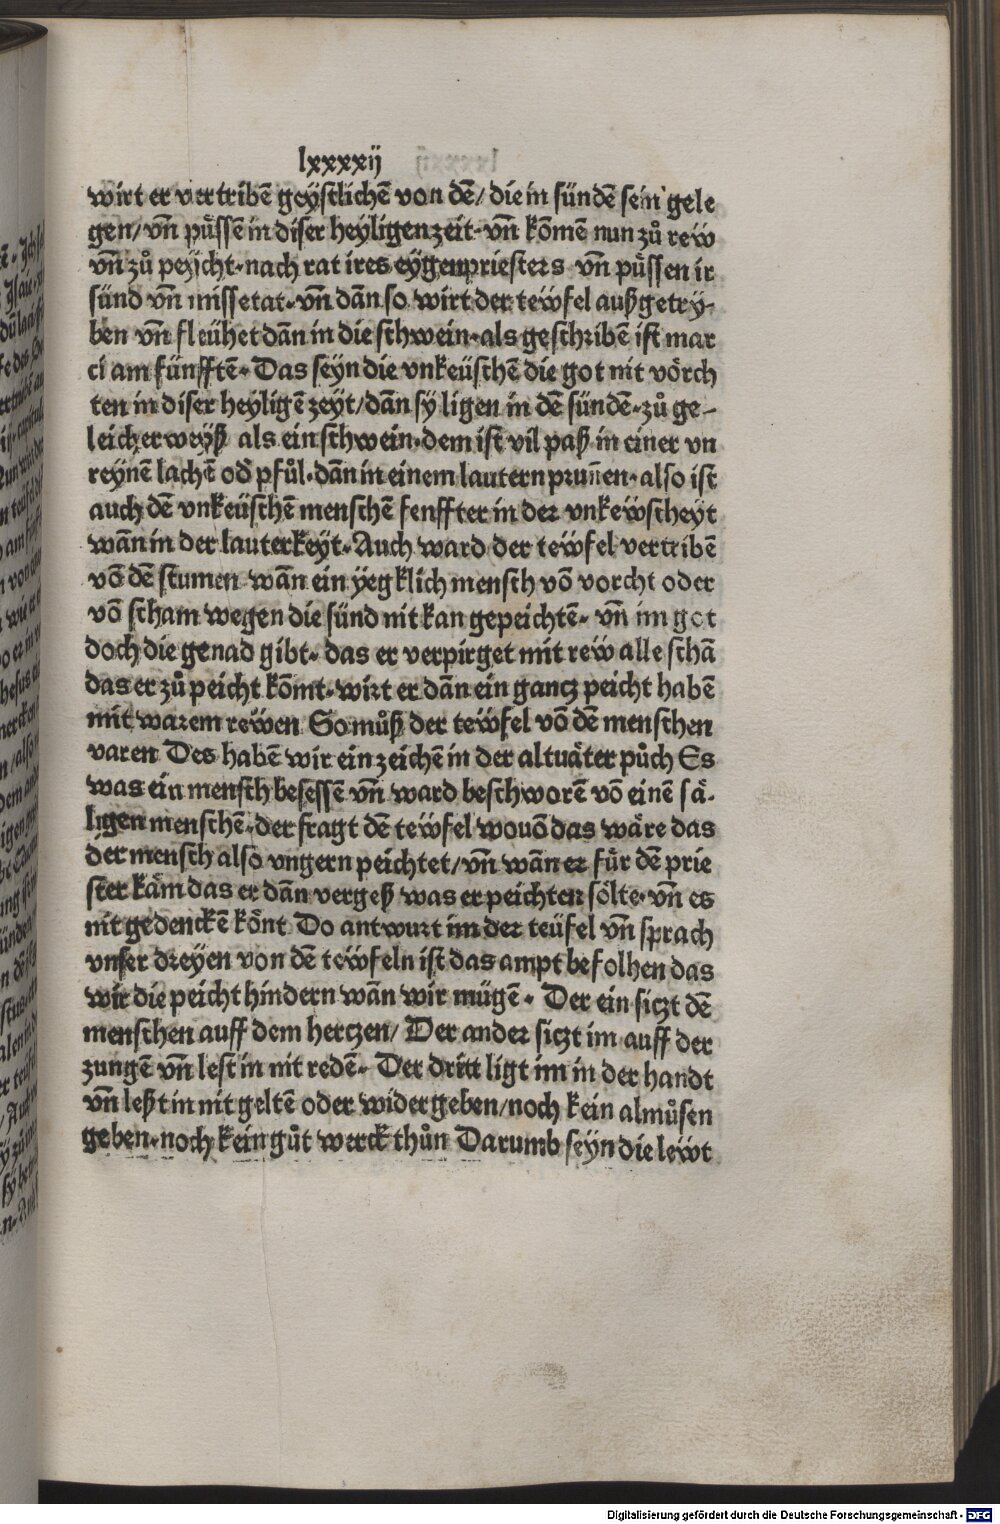 lxxxxij
wirt er vertribẽ geÿstlichẽ von dẽ/ die in sündẽ sein gele
gen/ vñ püssẽ in diser heyligen zeit· vñ kõmẽ nun zů rew
vñ zů peycht· nach rat ires eÿgen priesters vñ püssen ir
sünd vñ missetat· vñ dãn so wirt der tewfel außgetry-
ben vñ fleühet dãn in die schwein· als geschribẽ ist mar
ci am fünfftẽ· Das seyn die vnkeüschẽ die got nit vörch
ten in diser heyligẽ zeyt/ dãn sÿ ligen in dẽ sündẽ· zů ge-
leicher weyß als ein schwein· dem ist vil paß in einer vn
reynẽ lachẽ oď pfůl· dãn in einem lautern prunnen· also ist
auch dẽ vnkeüschẽ menschẽ senffter in der vnkewscheyt
wãn in der lauterkeyt· Auch ward der tewfel vertribẽ
võ dẽ stumen wãn ein yegklich mensch võ vorcht oder
võ scham wegen die sünd nit kan gepeichtẽ· vñ im got
doch die genad gibt· das er verpirget mit rew alle schã
das er zů peicht kõmt· wirt er dãn ein gancz peicht habẽ
mit warem rewen So můß der tewfel võ dẽ menschen
varen Des habẽ wir ein zeichẽ in der altuäter půch Es
was ein mensch besessẽ vñ ward beschworẽ võ einẽ sä-
ligen menschẽ· der fragt dẽ tewfel wouõ das wäre das
der mensch also vngern peichtet/ vñ wãn er für dẽ prie
ster käm das er dãn vergeß was er peichten sölte· vñ es
nit gedenckẽ könt Do antwurt im der teüfel vñ sprach
vnser dreyen von dẽ tewfeln ist das ampt befolhen das
wir die peicht hindern wãn wir mügẽ· Der ein siczt dẽ
menschen auff dem herczen/ Der ander siczt im auff der
zungẽ vñ lest in nit redẽ· Der dritt ligt im in der handt
vñ leßt in nit geltẽ oder widergeben/ noch kein almůsen
geben· noch kein gůt werck thůn Darumb seyn die lewt
Digitalisierung gefördert durch die Deutsche Forschungsgemeinschaft - DFG